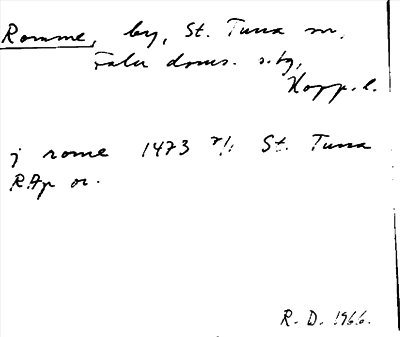 Romme, by, St. Tuna sn,
Falu doms. s:tg,
Kopp. l.
j rome 1473 2/1 St. Tuna
RAp or.
R. D. 1966.